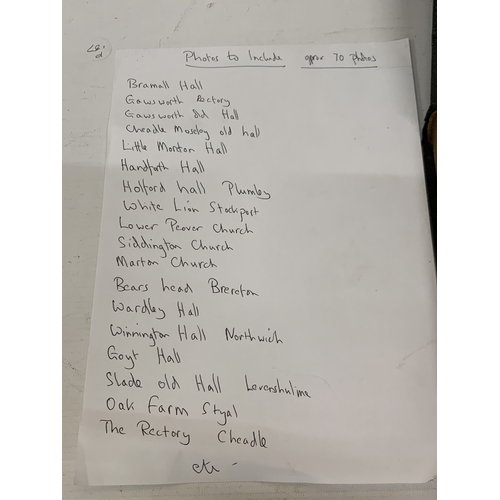 Photos to Include approx 70 photos
Bramall Hall
Gawsworth Rectory
Gawsworth Old Hall
Cheadle Moseley old hall
Little Morton Hall
Handforth Hall
Holford hall Plumley
White Lion Stockport
Lower Peover Church
Siddington Church
Marton Church
Bears head Brereton
Wardley Hall
Winnington Hall Northwich
Goyt Hall
Slade old Hall Levenshulme
Oak Farm Styal
The Rectory Cheadle
etc